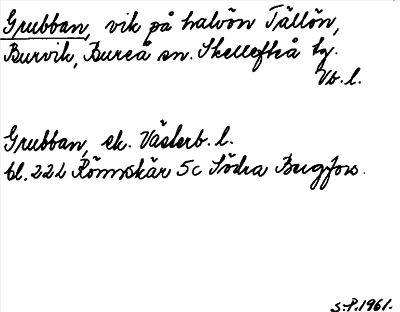 Grubban, vik på halvön Tällön,
Burvik, Bureå sn. Skellefteå tg.
Vb. l.
Grubban, ek. Västerb. l.
bl. 22L Rönnskär 5c Södra Bergfors.
S.P. 1961.